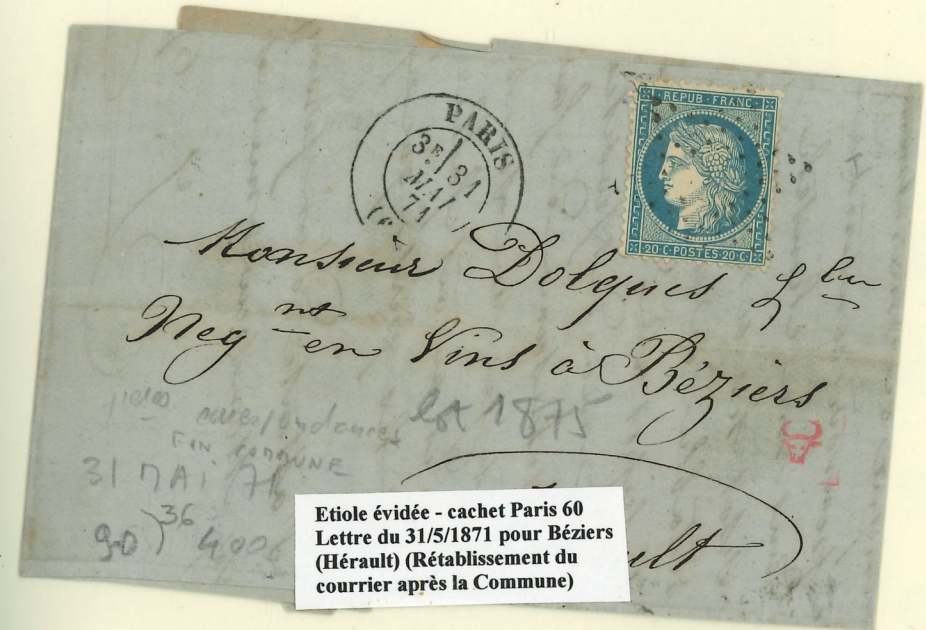 PARIS
3E 31
MAI
71
(6
REPUB FRANC
20 C POSTES 20 C
Monsieur Dolques
Negnt en Vins à Béziers
correspondances
FIN COMMUNE
lot 1875
31 MAI 71
36
90 400
Etiole évidée - cachet Paris 60
Lettre du 31/5/1871 pour Béziers
(Hérault) (Rétablissement du
courrier après la Commune)
ult